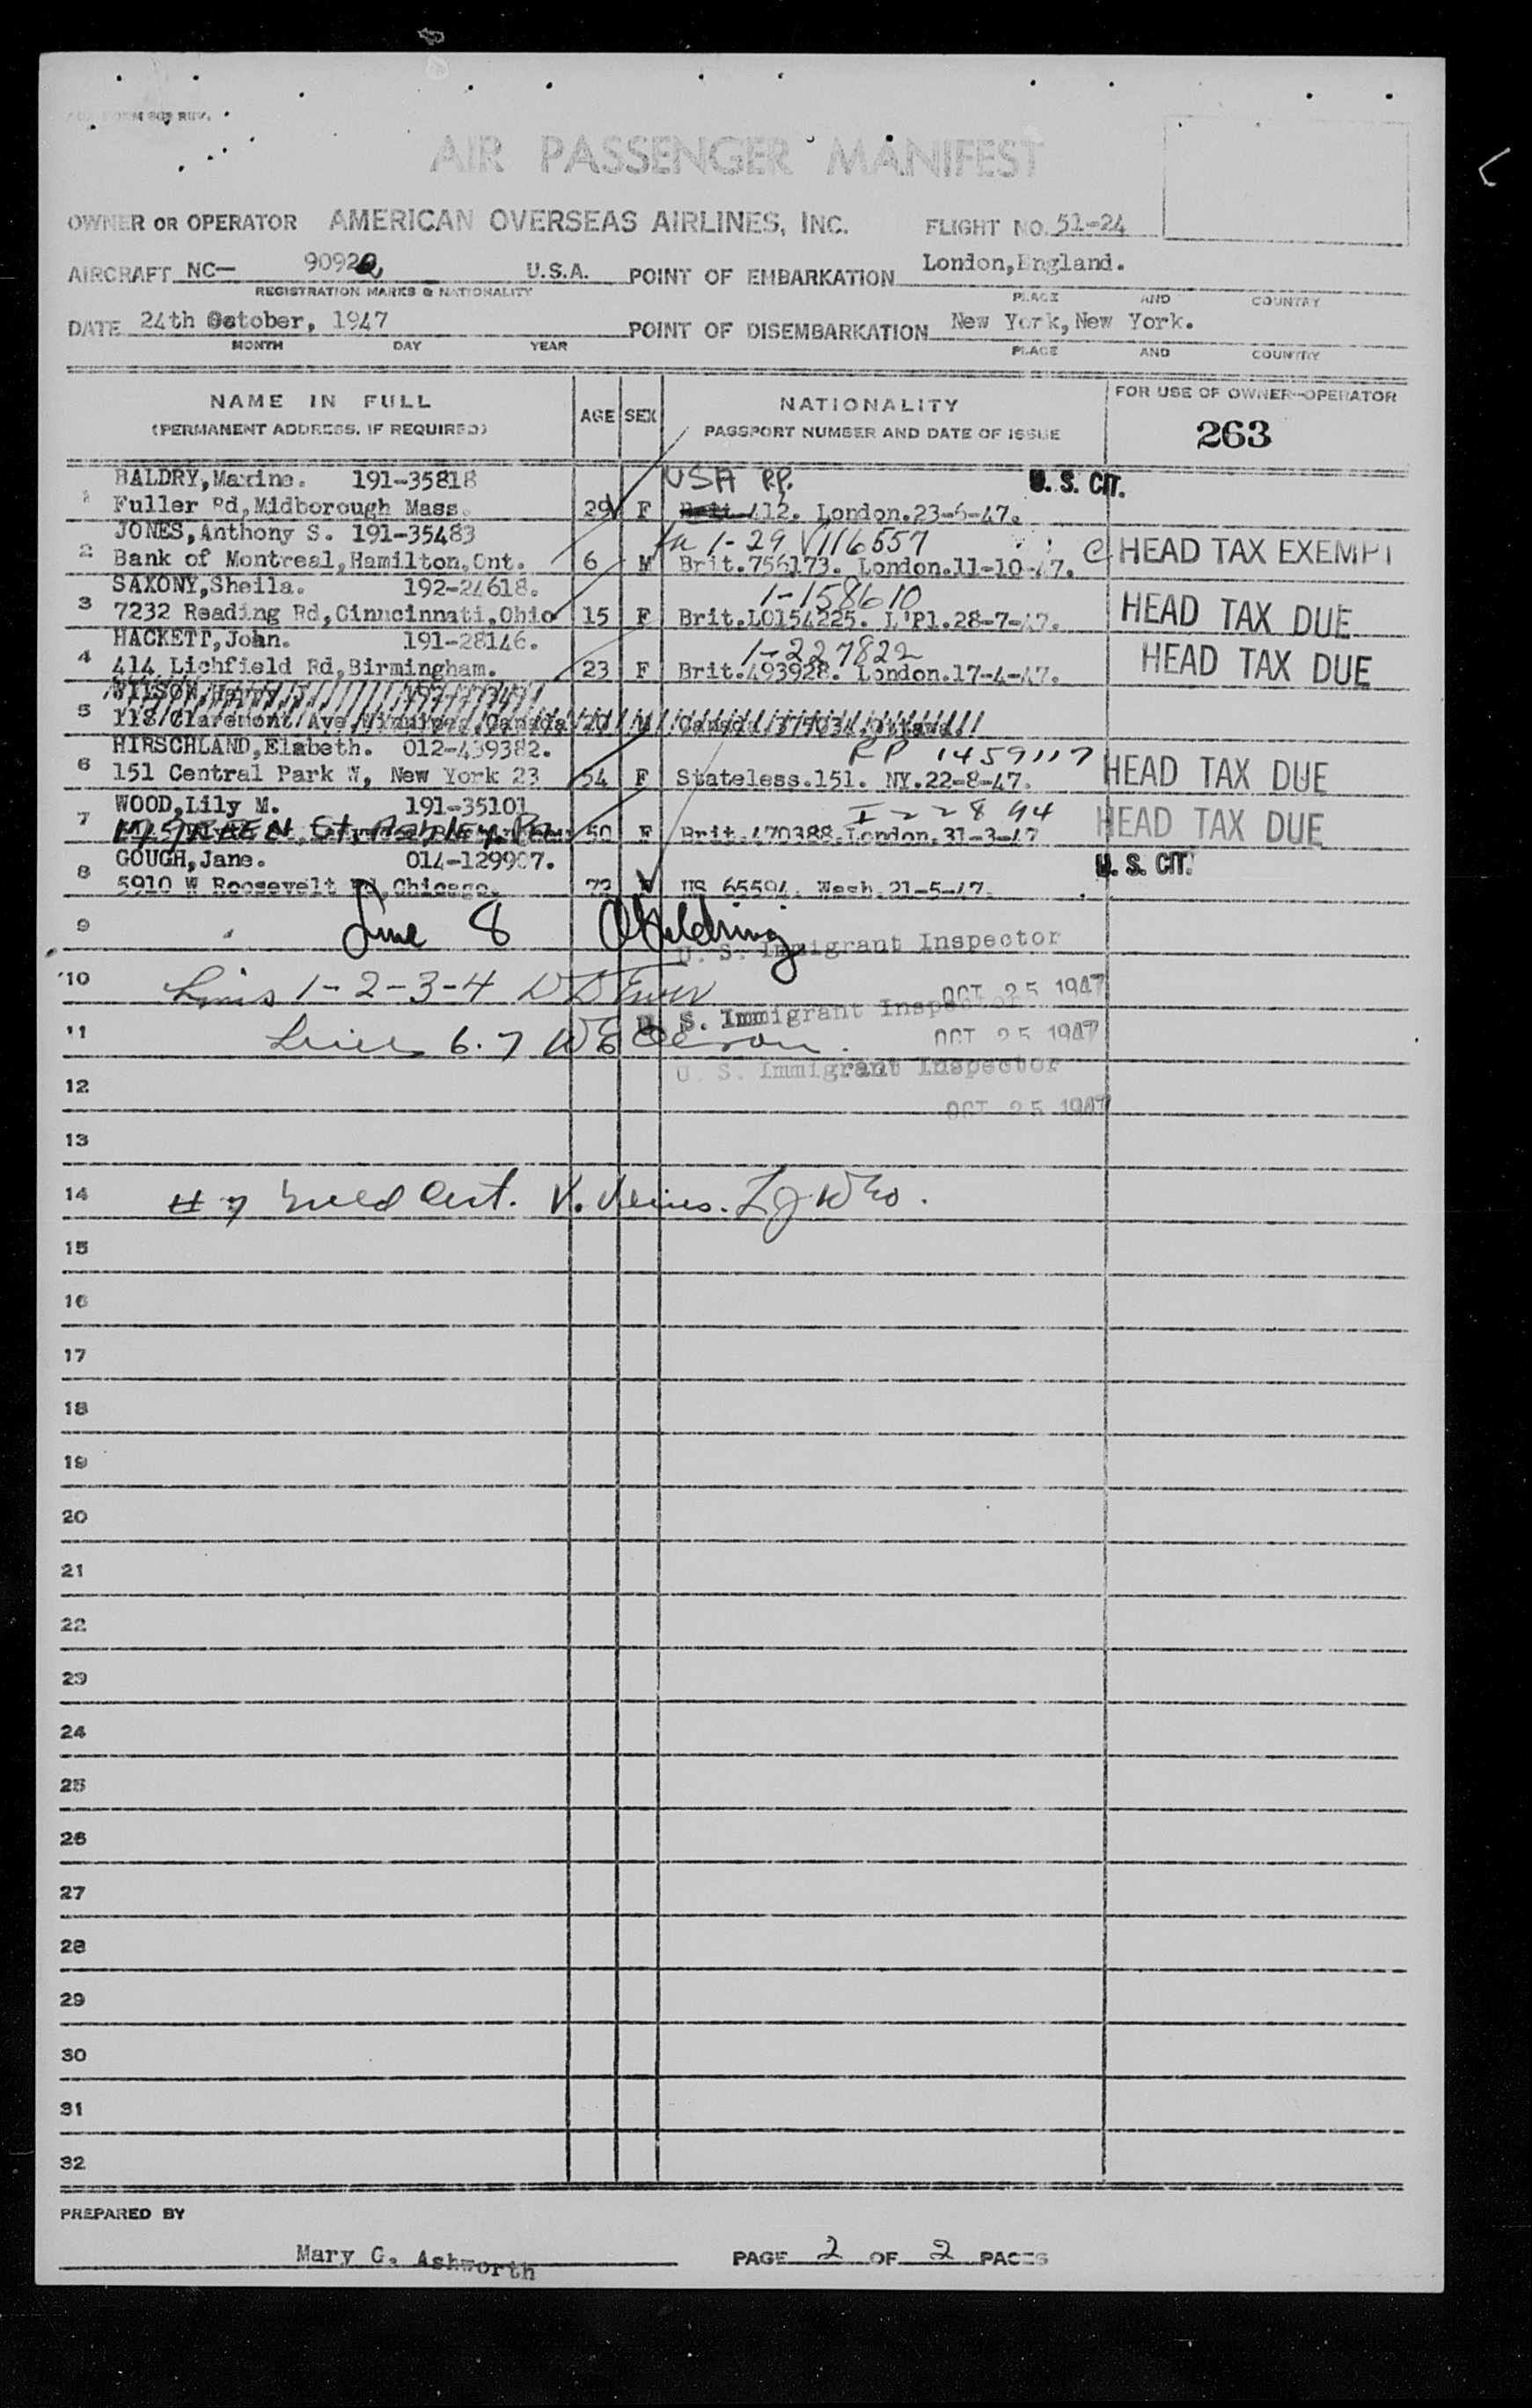 AIR PASSENGER MANIFEST
OWNER OR OPERATOR AMERICAN OVERSEAS AIRLINES, INC. FLIGHT NO. 51-24
AIRCRAFT NC— 9092 U.S.A. POINT OF EMBARKATION London,England.
REGISTRATION MARKS & NATIONALITY PLACE AND COUNTRY
DATE 24th October, 1947 POINT OF DISEMBARKATION New York,New York.
MONTH DAY YEAR PLACE AND COUNTRY
NAME IN FULL AGE SEX NATIONALITY FOR USE OF OWNER-OPERATOR
(PERMANENT ADDRESS, IF REQUIRED) PASSPORT NUMBER AND DATE OF ISSUE 263
BALDRY,Maxine. 191-35818 USA PP. U. S. CIT.
1 Fuller Rd,Midborough Mass. 29 F Brit 412. London.23-6-47.
JONES,Anthony S. 191-35483 1-29 V116557
2 Bank of Montreal,Hamilton,Ont. 6 M Brit.756173. London.11-10-47. HEAD TAX EXEMPT
SAXONY,Sheila. 192-24618. 1-158610
3 7232 Reading Rd,Cinncinnati,Ohio 15 F Brit.L0154225. L'Pl.28-7-47. HEAD TAX DUE
HACKETT,John. 191-28146. 1-227822
4 414 Lichfield Rd,Birmingham. 23 F Brit.493928. London.17-4-47. HEAD TAX DUE
WILSON,
5 118 Claremont Ave,Winnipeg,Canada 20 M Canad. Ottawa.
HIRSCHLAND,Elsbeth. 012-439382. RP 1459117
6 151 Central Park W, New York 23 54 F Stateless.151. NY.22-8-47. HEAD TAX DUE
WOOD,Lily M. 191-35101 I-22894
7 GREEN St. Ashley Rd 50 F Brit.470388.London.31-3-47 HEAD TAX DUE
GOUGH,Jane. 014-129907. U. S. CIT.
8 5910 W Roosevelt Rd,Chicago. 72 F US 65594. Wash.21-5-47.
9 Line 8
U. S. Immigrant Inspector
10 Lines 1-2-3-4 OCT 25 1947
U. S. Immigrant Inspector
11 Lines 6.7 OCT 25 1947
U. S. Immigrant Inspector
12
OCT 25 1947
13
14 # 7 Med Cert.
15
16
17
18
19
20
21
22
23
24
25
26
27
28
29
30
31
32
PREPARED BY
Mary G. Ashworth PAGE 2 OF 2 PAGES